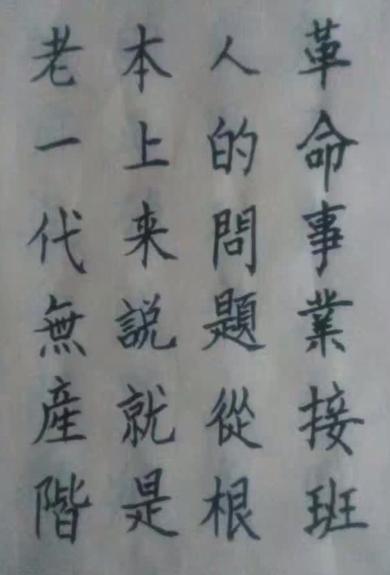 革命事業接班
人的問題從根
本上来説就是
老一代無産階